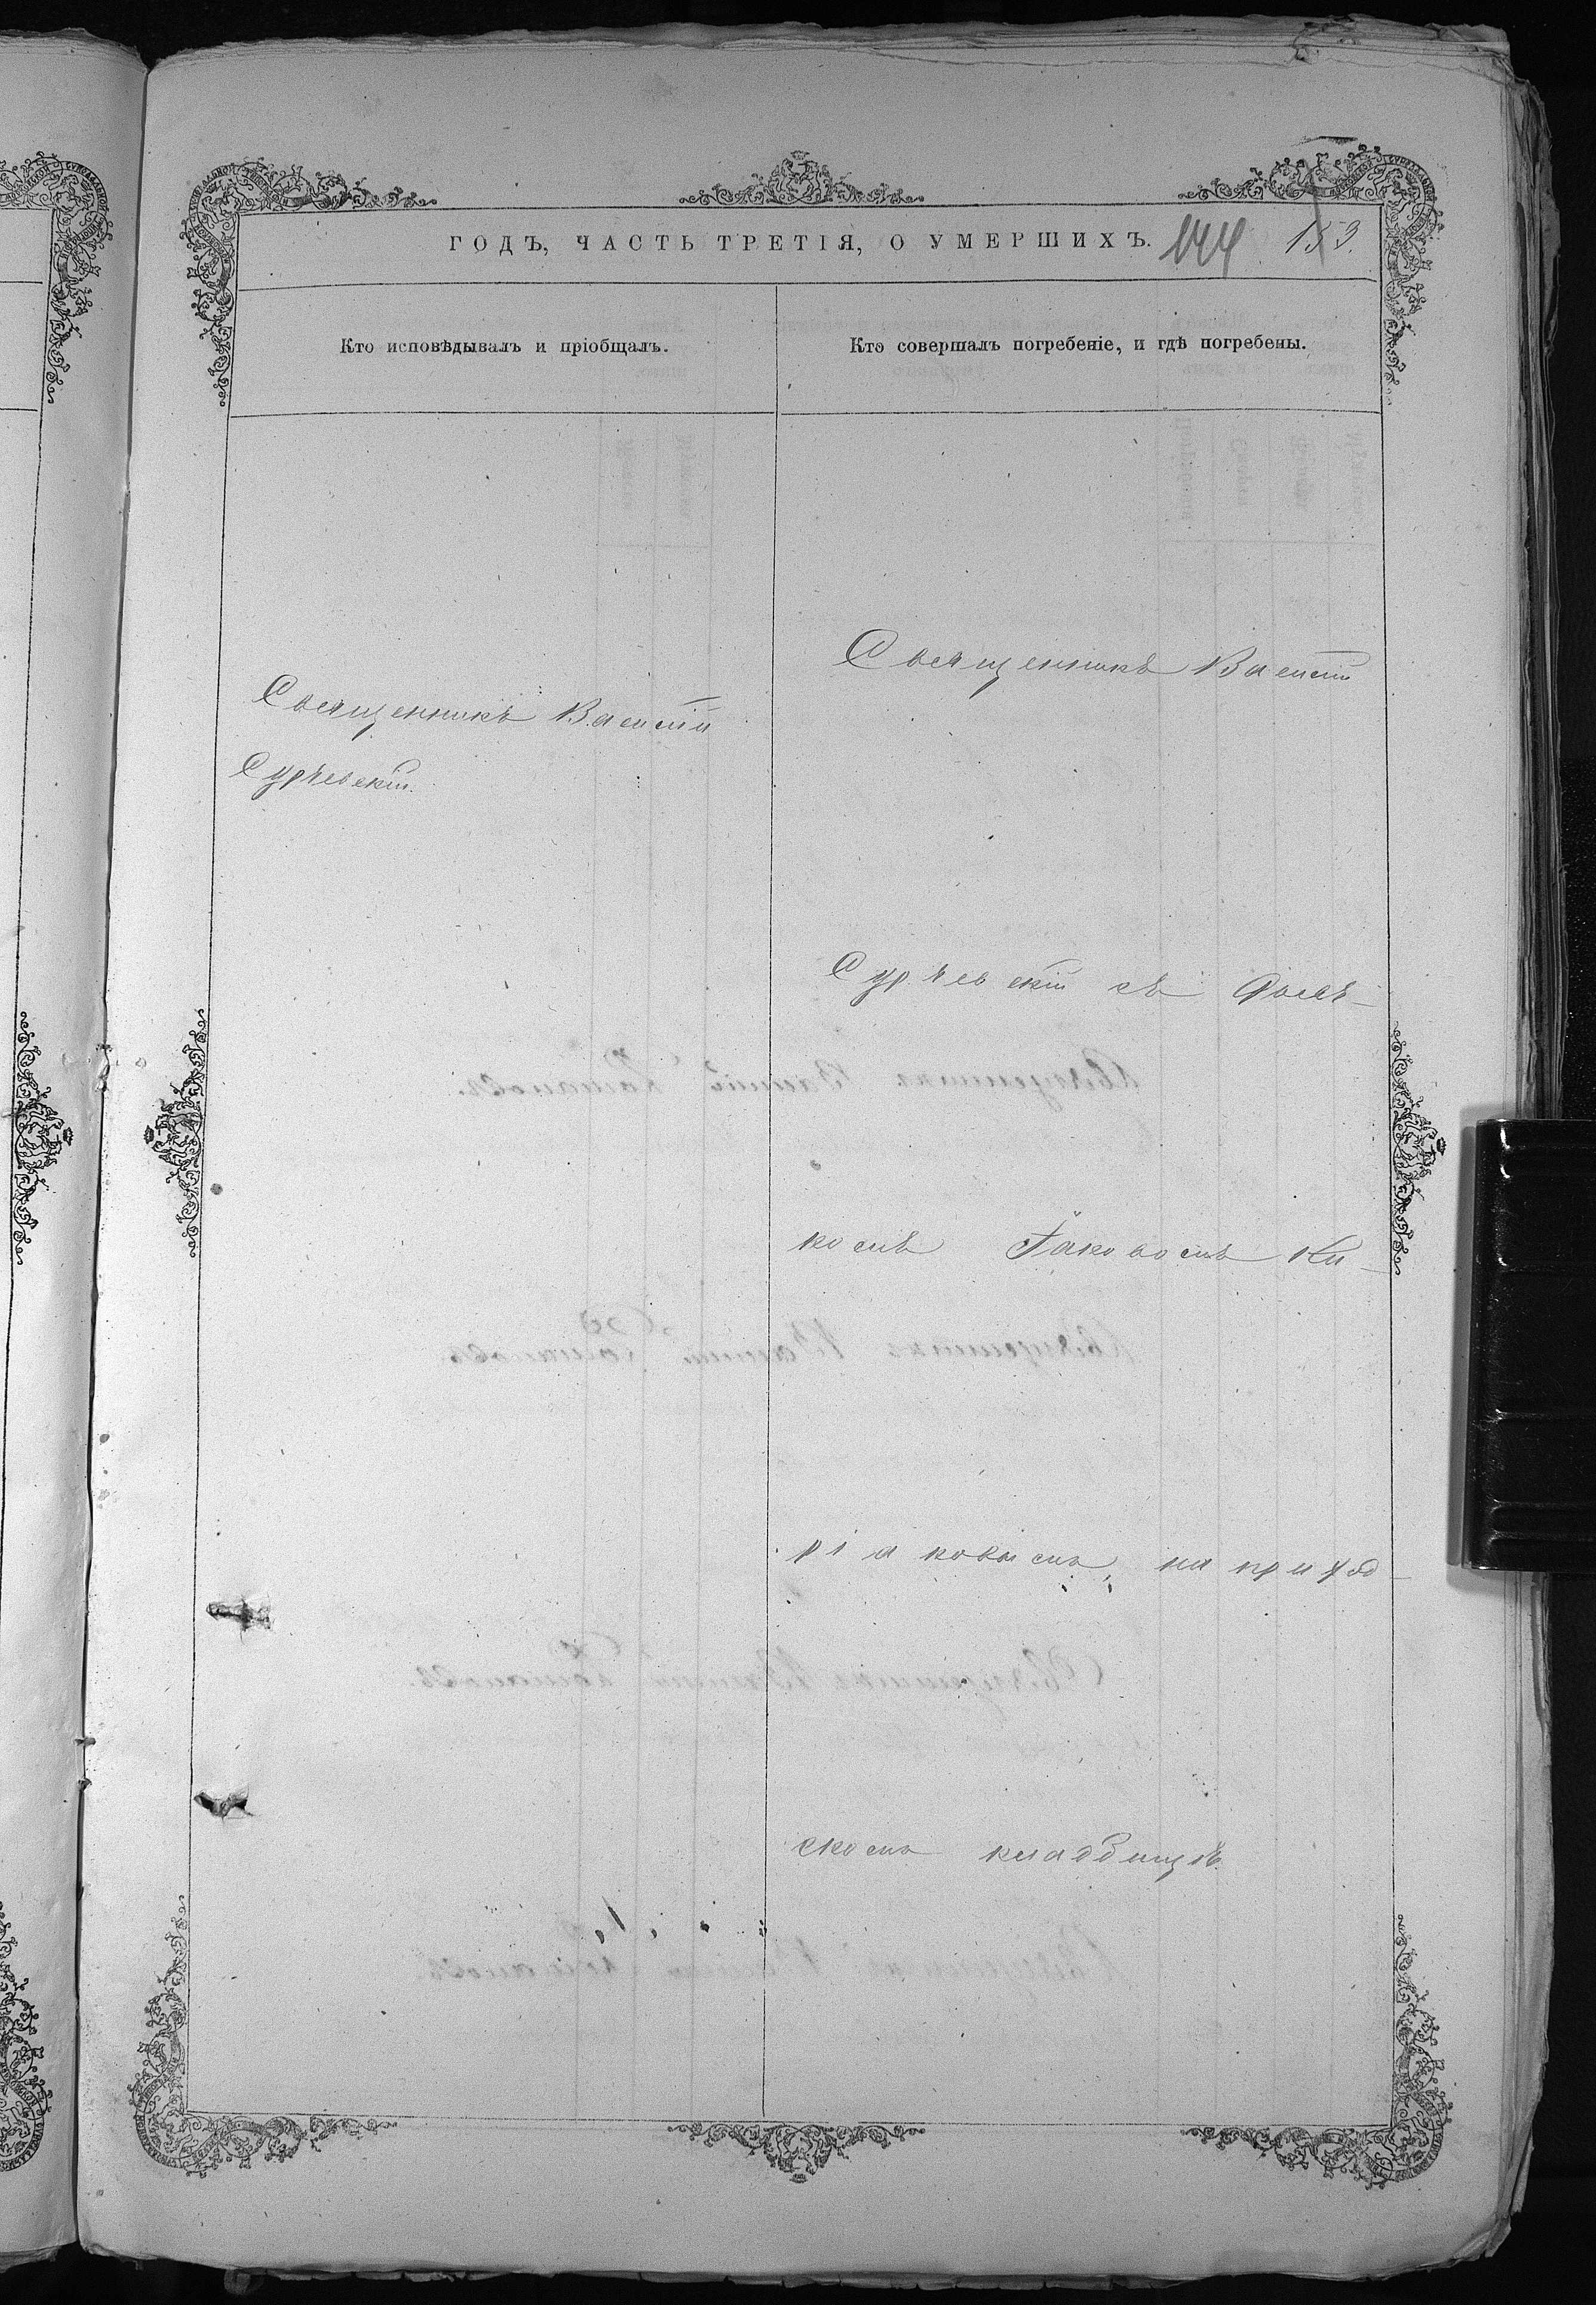 ГОДЪ, ЧАСТЬ ТРЕТІЯ, О УМЕРШИХЪ. 144 153.
Кто исповѣдывалъ и пріобщалъ.
Кто совершалъ погребеніе, и гдѣ погребены.
Священникъ Василій
Сурѣевскій.
Священникъ Василій
Сурѣевскій съ
комъ Іаковомъ Ки-
ріаковымъ, на приход-
скомъ кладбищѣ.